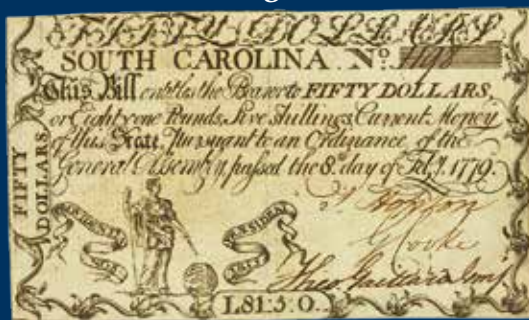 FIFTY DOLLARS
SOUTH CAROLINA. Nº.
This Bill entitles the Bearer to FIFTY DOLLARS,
or Eighty one Pounds, Five Shillings, Current Money
of this State, Pursuant to an Ordinance of the
General Assembly, passed the 8th day of Feby. 1779.
FIFTY
DOLLARS
G Cooke
L81:5:0